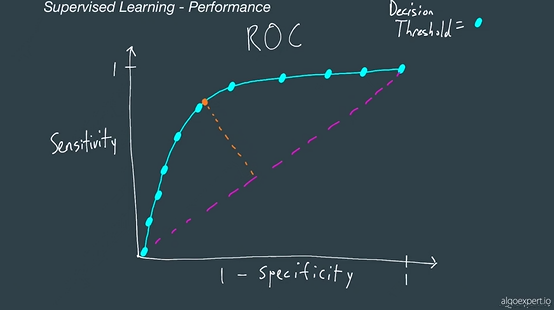 Supervised Learning - Performance
Decision
Threshold =
ROC
1
Sensitivity
1 - Specificity
1
algoexpert.io